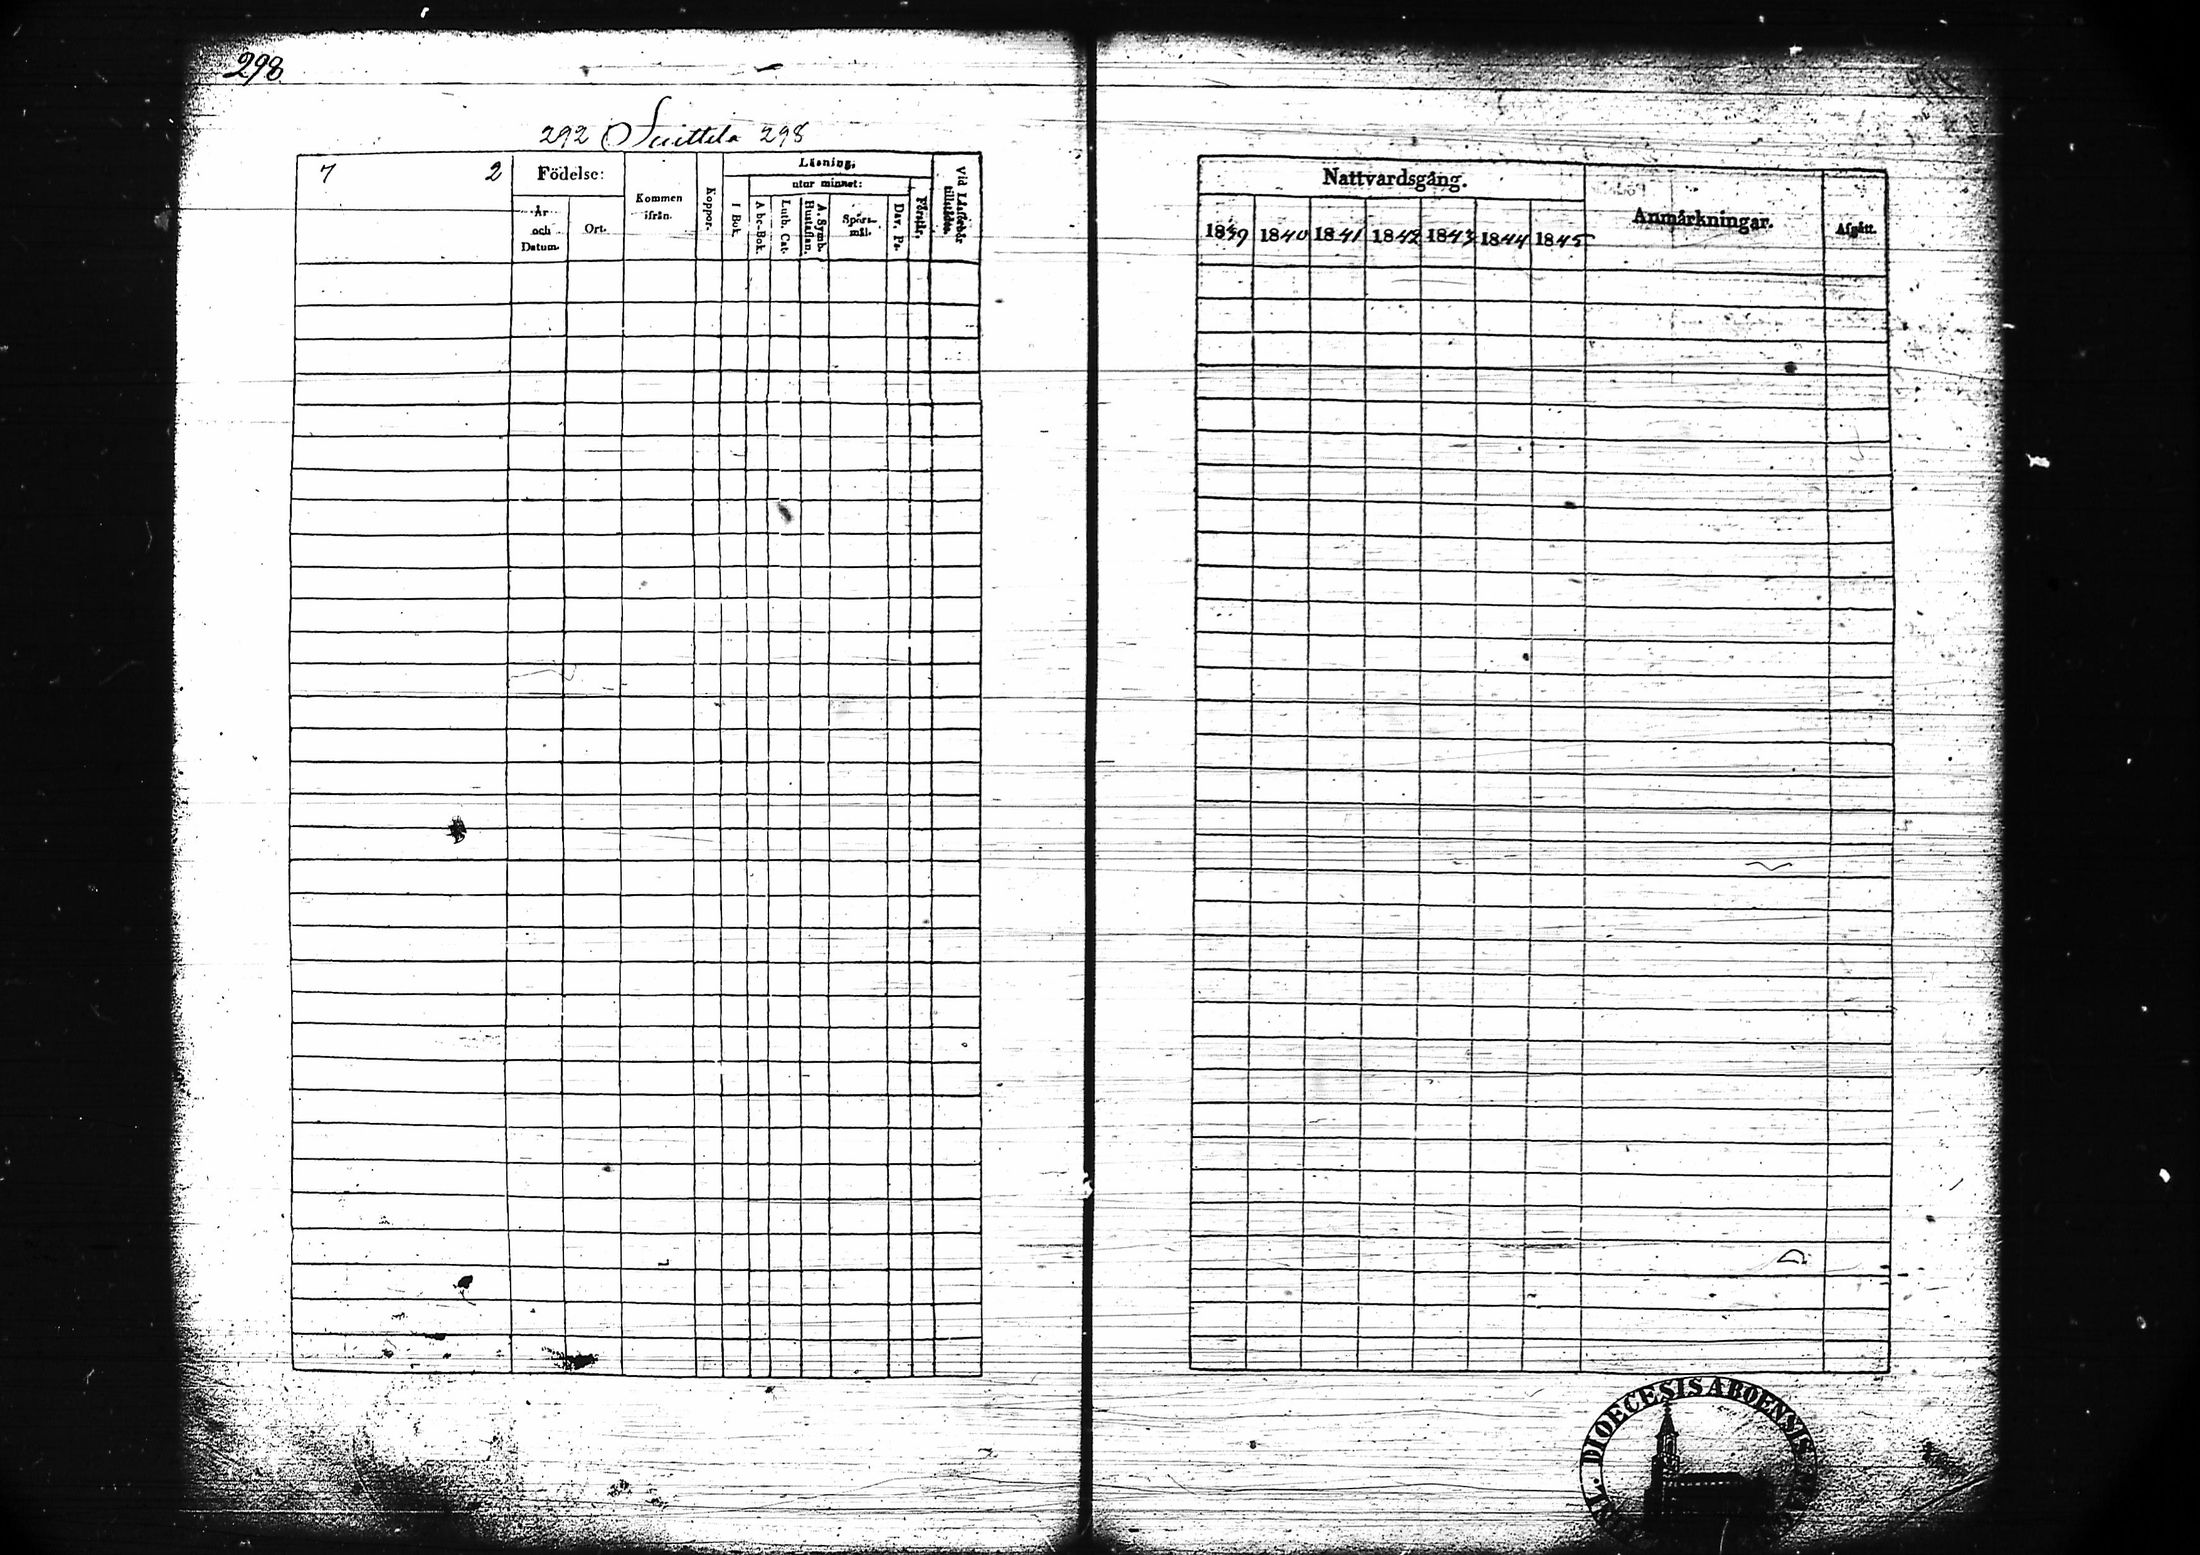 298
292 Suittila 298
7 2 Födelse: Kommen ifrån. Koppor. Läsning, Vid Läsförhör tillstädes.
utur minnet: Förstår.
År och Datum. Ort. I Bok. Abc-Bok. Luth. Cat. A. Symb. Hustaflan. Spörs-mål. Dav. Ps.
Nattvardsgång. Anmärkningar. Afgått.
1839 1840 1841 1842 1843 1844 1845
DIOECESIS ABOENSIS